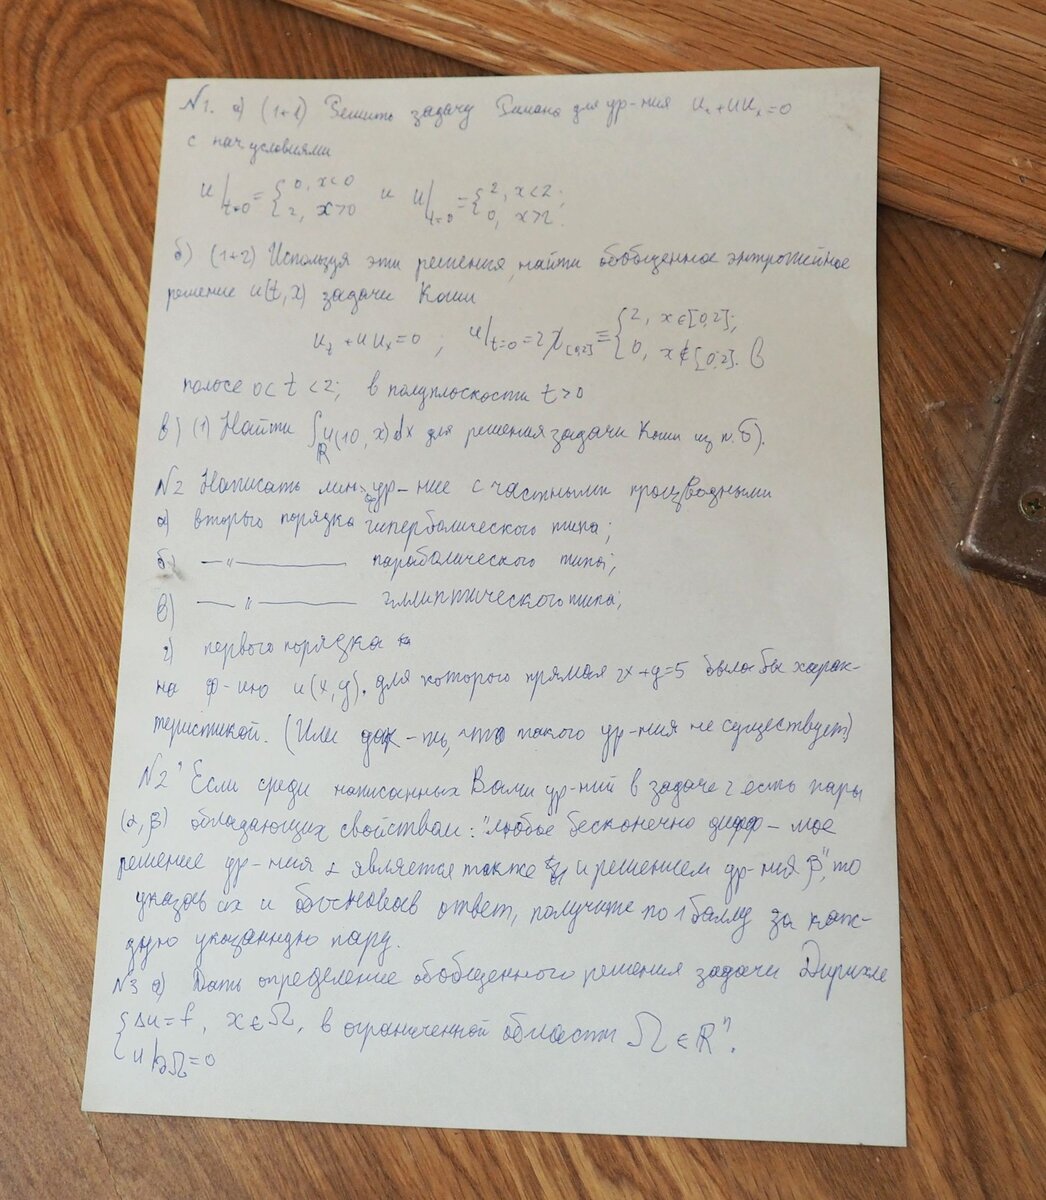 №1. а) (1+1) Решить задачу Римана для ур-ния u_t + u u_x = 0
с нач условиями
u|_{t=0} = { 0, x<0 ; 2, x>0 и u|_{t=0} = { 2, x<2 ; 0, x>2.
б) (1+2) Используя эти решения, найти обобщенное энтропийное
решение u(t,x) задачи Коши
u_t + u u_x = 0 ; u|_{t=0} = 2χ_{[0,2]} ≡ { 2, x∈[0,2]; 0, x∉[0,2]. в
полосе 0< t <2; в полуплоскости t>0
в) (1) Найти ∫_ℝ u(10, x) dx для решения задачи Коши из п. б).
№2 Написать лин. ур-ние с частными производными
а) второго порядка гиперболического типа;
б) —„— параболического типа;
в) —„— эллиптического типа;
г) первого порядка
на ф-ию u(x,y), для которого прямая 2x+y=5 была бы харак-
теристикой. (Или док-ть, что такого ур-ния не существует)
№2' Если среди написанных Вами ур-ний в задаче 2 есть пары
(α,β) обладающих свойством: "любое бесконечно дифф-мое
решение ур-ния α является также и решением ур-ния β", то
указав их и обосновав ответ, получите по 1 баллу за каж-
дую указанную пару.
№3 а) Дать определение обобщенного решения задачи Дирихле
{ Δu = f, x∈Ω, в ограниченной области Ω ∈ ℝⁿ.
u|_{∂Ω} = 0